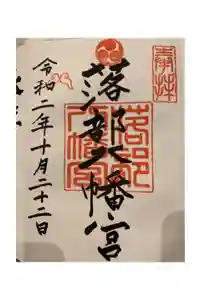 奉拝
落部八幡宮
落部八幡宮
令和二年十月二十二日